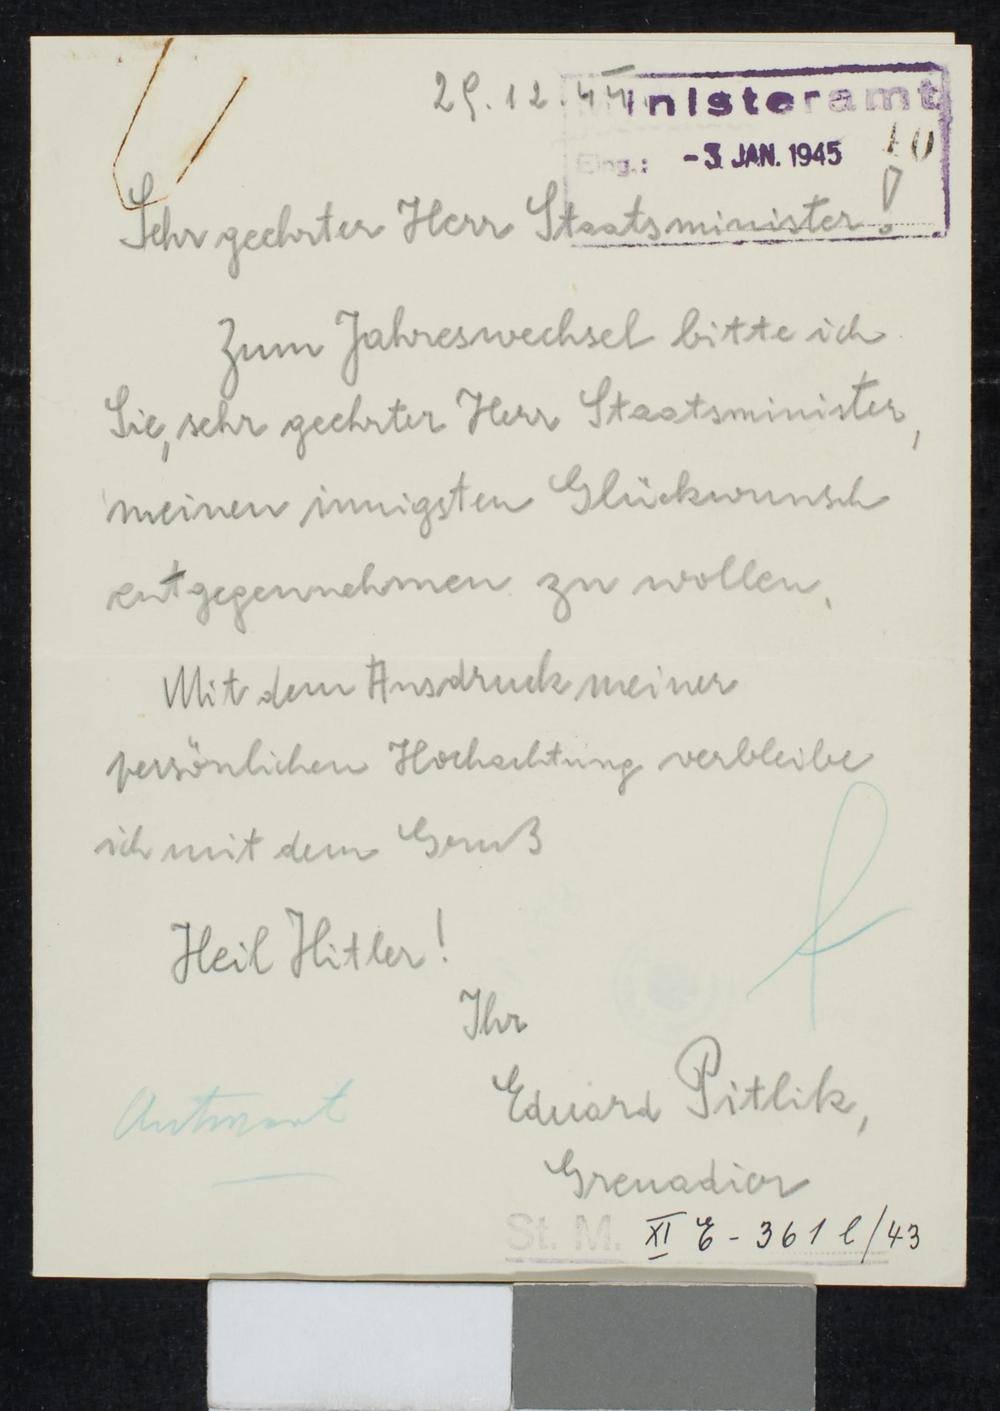 29.12.44
Ministeramt
Eing.: -3. JAN. 1945
10
Sehr geehrter Herr Staatsminister!
Zum Jahreswechsel bitte ich
Sie, sehr geehrter Herr Staatsminister,
meinen innigsten Glückwunsch
entgegennehmen zu wollen.
Mit dem Ausdruck meiner
persönlichen Hochachtung verbleibe
ich mit dem Gruß
Heil Hitler!
Ihr
Eduard Pitlik,
Antwort
Grenadier
St. M. XI E - 361 l/43